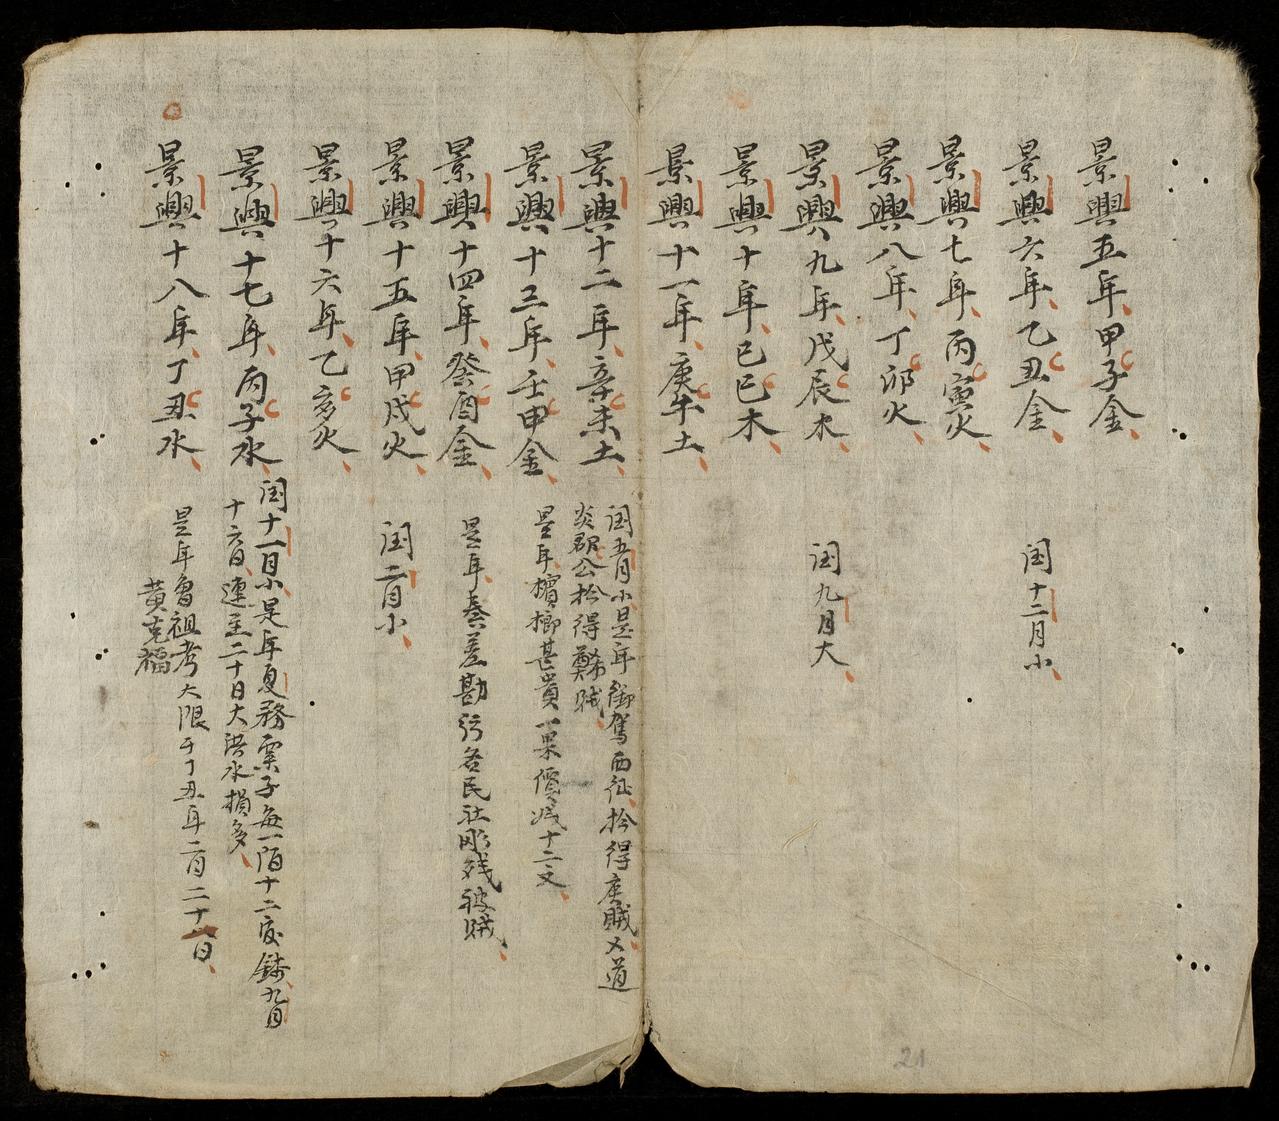 景興五年甲子金
景興六年乙丑金
閏十二月小
景興七年丙寅火
景興八年丁卯火
景興九年戊辰木
閏九月大
景興十年己巳木
景興十一年庚午土
景興十二年辛未土
閏五月小是年御駕西征捡得度賊又道
炎郡公捡得鄭賊
景興十三年壬申金
是年檳榔甚貴一果價減十二文
景興十四年癸酉金
是年奏差勘行各民社彫殘被賊
景興十五年甲戌火
閏二月小
景興十六年乙亥火
景興十七年丙子水
閏十一月小是年夏務粟子每一陌十二度錢九月
十六日連至二十日大洪水損多
景興十八年丁丑水
是年曾祖考大限于丁丑年二月二十日
黃克福
21